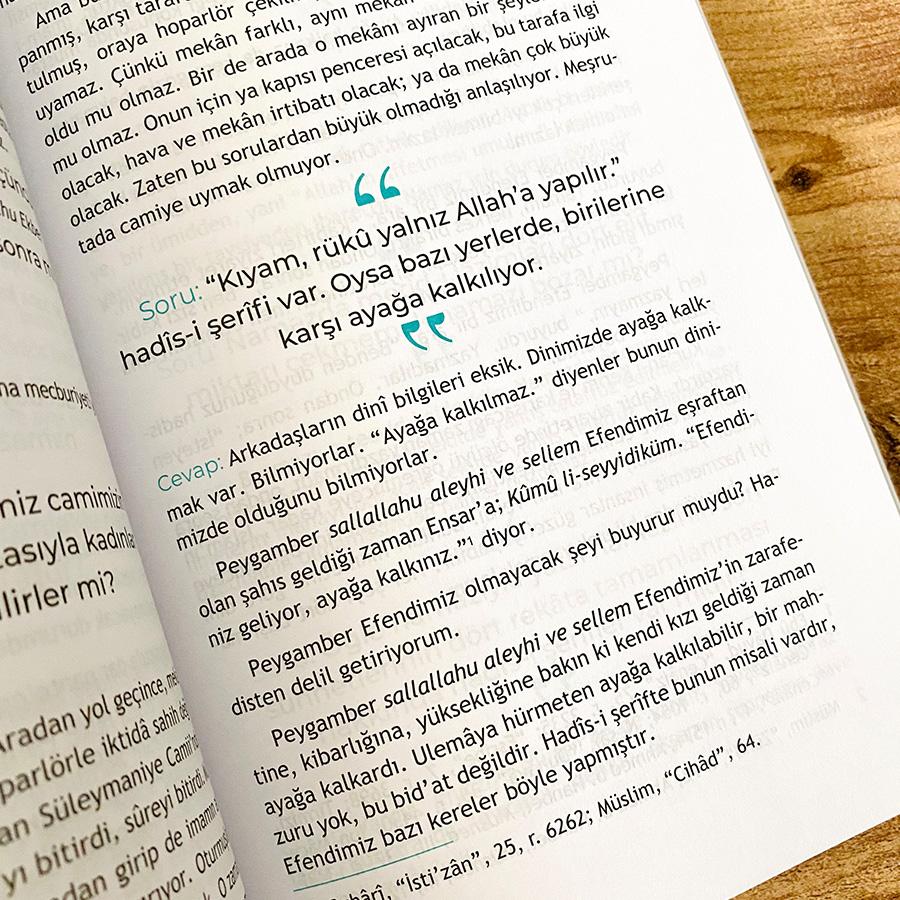 Ama
panmış, karşı
tulmuş, oraya hoparlör
uyamaz. Çünkü mekân farklı, aynı mekân
oldu mu olmaz. Bir de arada o mekânı ayıran bir şey
mu olmaz. Onun için ya kapısı penceresi açılacak, bu tarafa ilgi
olacak, hava ve mekân irtibatı olacak; ya da mekân çok büyük
olacak. Zaten bu sorulardan büyük olmadığı anlaşılıyor. Meşru-
tada camiye uymak olmuyor.
Soru: “Kıyam, rükû yalnız Allah’a yapılır.”
hadîs-i şerîfi var. Oysa bazı yerlerde, birilerine
karşı ayağa kalkılıyor.
Cevap: Arkadaşların dinî bilgileri eksik. Dinimizde ayağa kalk-
mak var. Bilmiyorlar. “Ayağa kalkılmaz.” diyenler bunun dini-
mizde olduğunu bilmiyorlar.
Peygamber sallallahu aleyhi ve sellem Efendimiz eşraftan
olan şahıs geldiği zaman Ensar’a; Kûmû li-seyyidiküm. “Efendi-
niz geliyor, ayağa kalkınız.”¹ diyor.
Peygamber Efendimiz olmayacak şeyi buyurur muydu? Ha-
disten delil getiriyorum.
Peygamber sallallahu aleyhi ve sellem Efendimiz’in zarafe-
tine, kibarlığına, yüksekliğine bakın ki kendi kızı geldiği zaman
ayağa kalkardı. Ulemâya hürmeten ayağa kalkılabilir, bir mah-
zuru yok, bu bid’at değildir. Hadîs-i şerîfte bunun misali vardır,
Efendimiz bazı kereler böyle yapmıştır.
“İsti’zân”, 25, r. 6262; Müslim, “Cihâd”, 64.
sonra
na mecburiyet
niz camimiz
asıyla kadınla
ilirler mi?
Aradan yol geçince,
parlörle iktidâ sahih
an Süleymaniye Camii’n
yı bitirdi, sûreyi bitirdi.
ndan girip de imamın